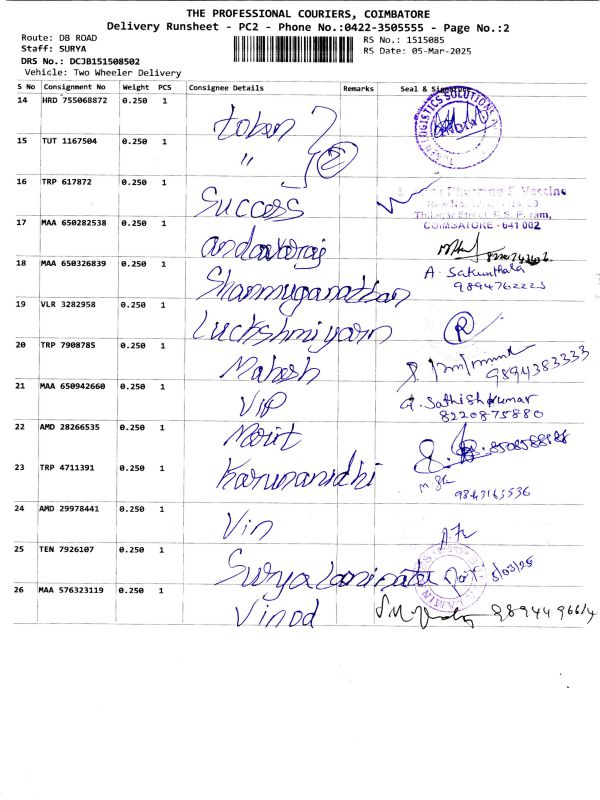 THE PROFESSIONAL COURIERS, COIMBATORE
Delivery Runsheet - PC2 - Phone No.:0422-3505555 - Page No.:2
Route: DB ROAD
RS No.: 1515085
Staff: SURYA
RS Date: 05-Mar-2025
DRS No.: DCJB151508502
Vehicle: Two Wheeler Delivery
S No Consignment No Weight PCS Consignee Details Remarks Seal & Signature
14 HRD 755068872 0.250 1
LOGISTICS SOLUTIONS
15 TUT 1167504 0.250 1 "
2
16 TRP 617872 0.250 1 Success
Pharma & Vaccine
COIMBATORE - 641 002
17 MAA 650282538 0.250 1
18 MAA 650326839 0.250 1 Shanmuganathan A. Sakunthala
9894762223
19 VLR 3282958 0.250 1 Luckshmiyarn R
20 TRP 7908785 0.250 1 Mahesh 9894383333
21 MAA 650942660 0.250 1 VIP G. Sathish kumar
8220875880
22 AMD 28266535 0.250 1
23 TRP 4711391 0.250 1 Karunanidhi
24 AMD 29978441 0.250 1 Vin
25 TEN 7926107 0.250 1 Surya 5/03/25
26 MAA 576323119 0.250 1 Vinod